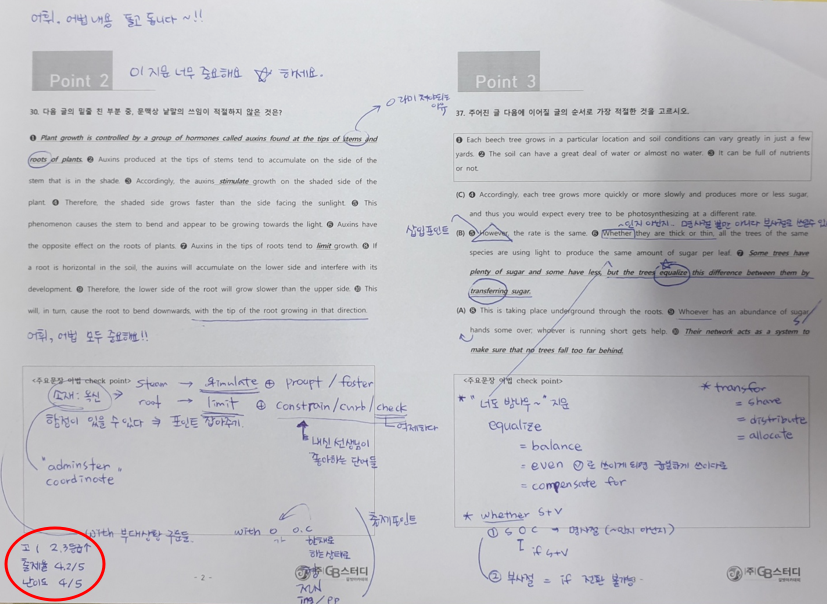 어휘. 어법 내용 풀고 둡니다 ~!!
Point 2
이 지문 너무 중요해요 ☆ 하세요.
30. 다음 글의 밑줄 친 부분 중, 문맥상 낱말의 쓰임이 적절하지 않은 것은?
❶ Plant growth is controlled by a group of hormones called auxins found at the tips of stems and
roots of plants. ❷ Auxins produced at the tips of stems tend to accumulate on the side of the
stem that is in the shade. ❸ Accordingly, the auxins stimulate growth on the shaded side of the
plant. ❹ Therefore, the shaded side grows faster than the side facing the sunlight. ❺ This
phenomenon causes the stem to bend and appear to be growing towards the light. ❻ Auxins have
the opposite effect on the roots of plants. ❼ Auxins in the tips of roots tend to limit growth. ❽ If
a root is horizontal in the soil, the auxins will accumulate on the lower side and interfere with its
development. ❿ Therefore, the lower side of the root will grow slower than the upper side. ⓫ This
will, in turn, cause the root to bend downwards, with the tip of the root growing in that direction.
어휘, 어법 모두 중요해요!!
<주요문장 어법 check point>
steam → stimulate ⊕ proupt / foster
소재: 옥신
root → limit ⊕ constrain/curb/check
억제하다
함정이 있을 수 있다 ⇒ 포인트 잡아주기.
내신 선생님이
좋아하는 단어들
"adminster"
coordinate
with 부대상황 구문들.
with O O.C
출제포인트
현재로
하는상태로
ing/pp
고1 2.3등급↑
출제율 4.2/5
난이도 4/5
- 2 -
(주)GB스터디
Point 3
37. 주어진 글 다음에 이어질 글의 순서로 가장 적절한 것을 고르시오.
❶ Each beech tree grows in a particular location and soil conditions can vary greatly in just a few
yards. ❷ The soil can have a great deal of water or almost no water. ❸ It can be full of nutrients
or not.
(C) ❹ Accordingly, each tree grows more quickly or more slowly and produces more or less sugar,
and thus you would expect every tree to be photosynthesizing at a different rate.
삽입포인트
(B) ❺ However, the rate is the same. ❻ Whether they are thick or thin, all the trees of the same
species are using light to produce the same amount of sugar per leaf. ❼ Some trees have
plenty of sugar and some have less, but the trees equalize this difference between them by
transferring sugar.
(A) ❽ This is taking place underground through the roots. ❾ Whoever has an abundance of sugar
hands some over; whoever is running short gets help. ❿ Their network acts as a system to
make sure that no trees fall too far behind.
<주요문장 어법 check point>
* "너도 밤나무~" 지문
equalize
= balance
= even
= compensate for
* transfor
= share
= distribute
= allocate
* whether S+V
① S O C → 명사절 (~인지 아닌지)
if S+V
② 부사절 = if 전환 불가능.
(주)GB스터디